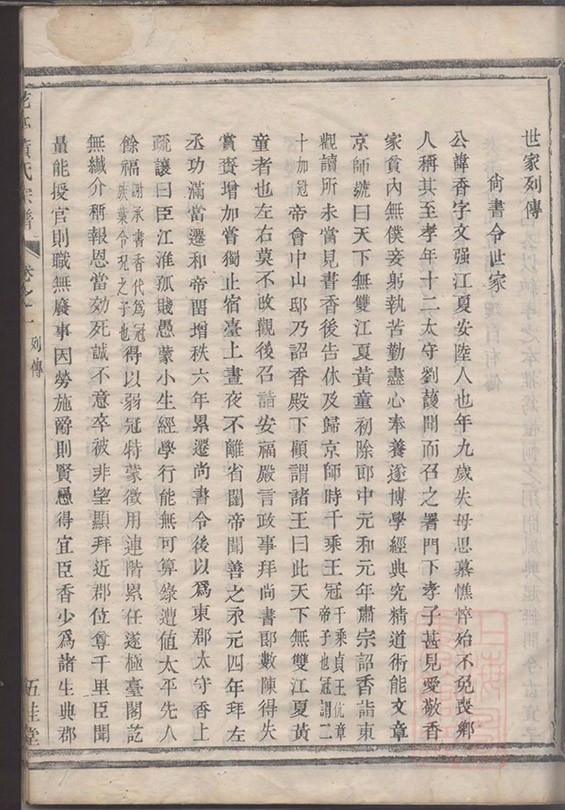 世家列傳
尚書令世家
公諱香字文强江夏安陸人也年九歲失母思慕憔悴殆不免喪鄉
人稱其至孝年十二太守劉護聞而召之署門下孝子甚見愛敬香
家貧內無僕妾躬執苦勤盡心奉養遂博學經典究精道術能文章
京師號曰天下無雙江夏黃童初除郎中元和元年肅宗詔香詣東
觀讀所未嘗見書香後告休及歸京師時千乘王冠千乘貞王伉章帝子也冠謂二
十加冠帝會中山邸乃詔香殿下顧謂諸王曰此天下無雙江夏黃
童者也左右莫不改觀後召詣安福殿言政事拜尚書郎數陳得失
賞賚增加嘗獨止宿臺上晝夜不離省闥帝聞善之永元四年拜左
丞功滿當遷和帝留增秩六年累遷尚書令後以爲東郡太守香上
疏讓曰臣江淮孤賤愚蒙小生經學行能無可算錄遭值太平先人
餘福謝承書香代爲冠族葉令況之子也得以弱冠特蒙徵用連階累任遂極臺閣訖
無纖介稱報恩當効死誠不意卒被非望顯拜近郡位尊千里臣聞
量能授官則職無廢事因勞施爵則賢愚得宜臣香少爲諸生典郡
黃氏宗譜
卷之一
列傳
五桂堂